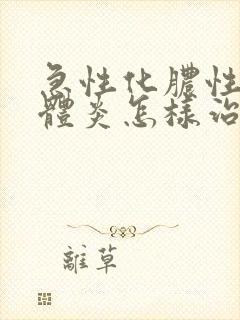 急性化膿性
體炎怎樣治
離草